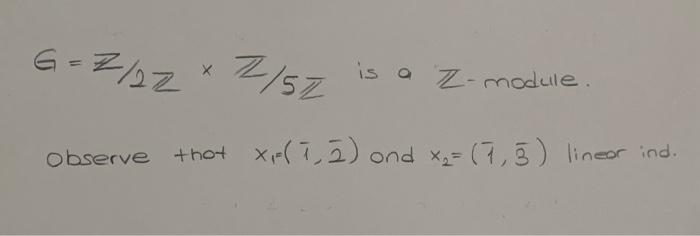 G = ℤ/2ℤ × ℤ/5ℤ is a ℤ-module.
Observe that x₁=(1̄, 2̄) and x₂=(1̄, 3̄) linear ind.